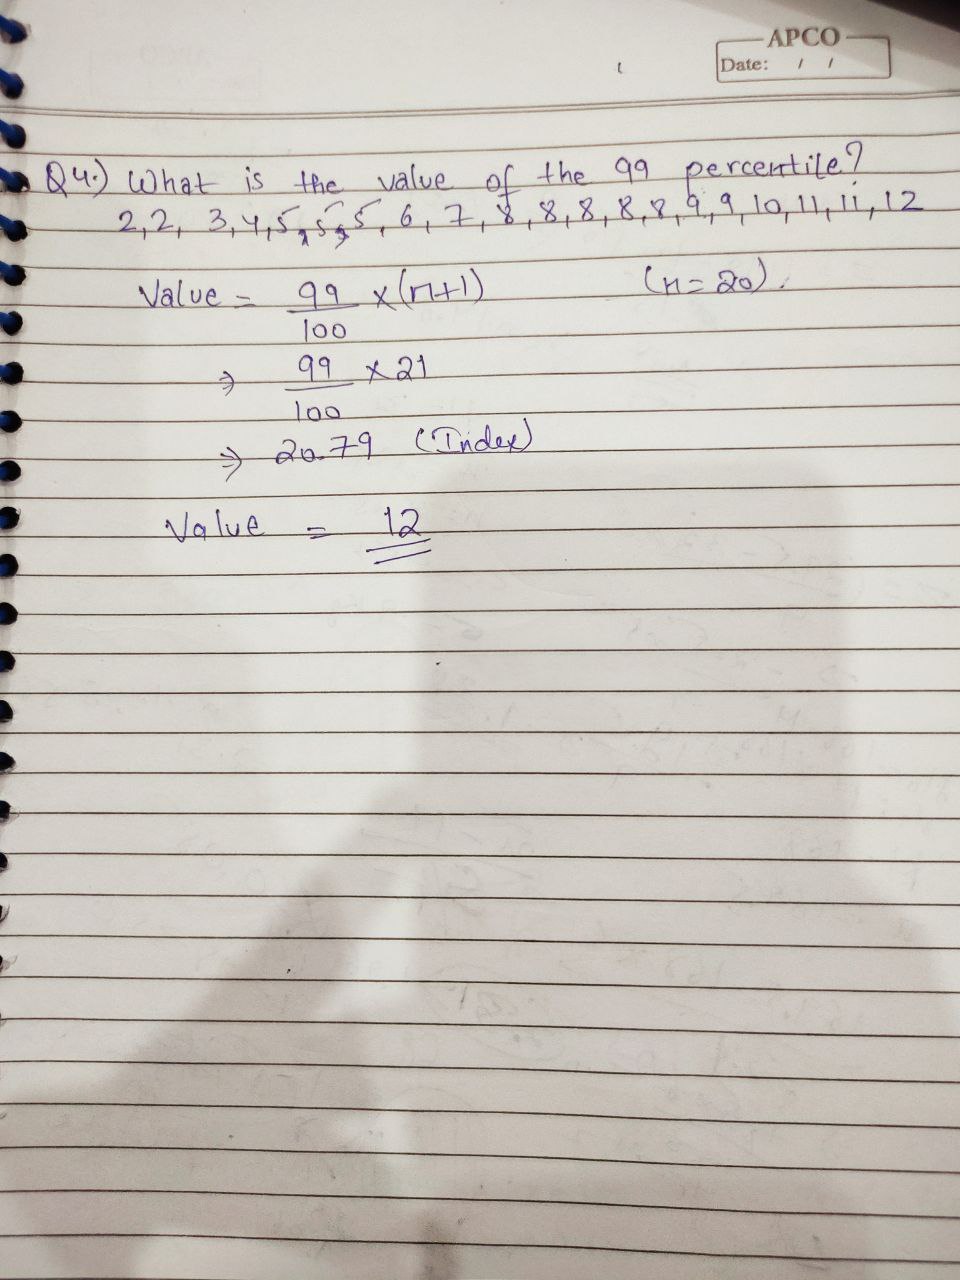 APCO
Date: / /
Q4.) What is the value of the 99 percentile?
2,2, 3,4,5,5,5, 6, 7, 8, 8, 8, 8, 8, 9, 9, 10, 11, 11, 12
Value = 99/100 × (n+1) (n = 20).
⇒ 99/100 × 21
⇒ 20.79 (Index)
Value = 12